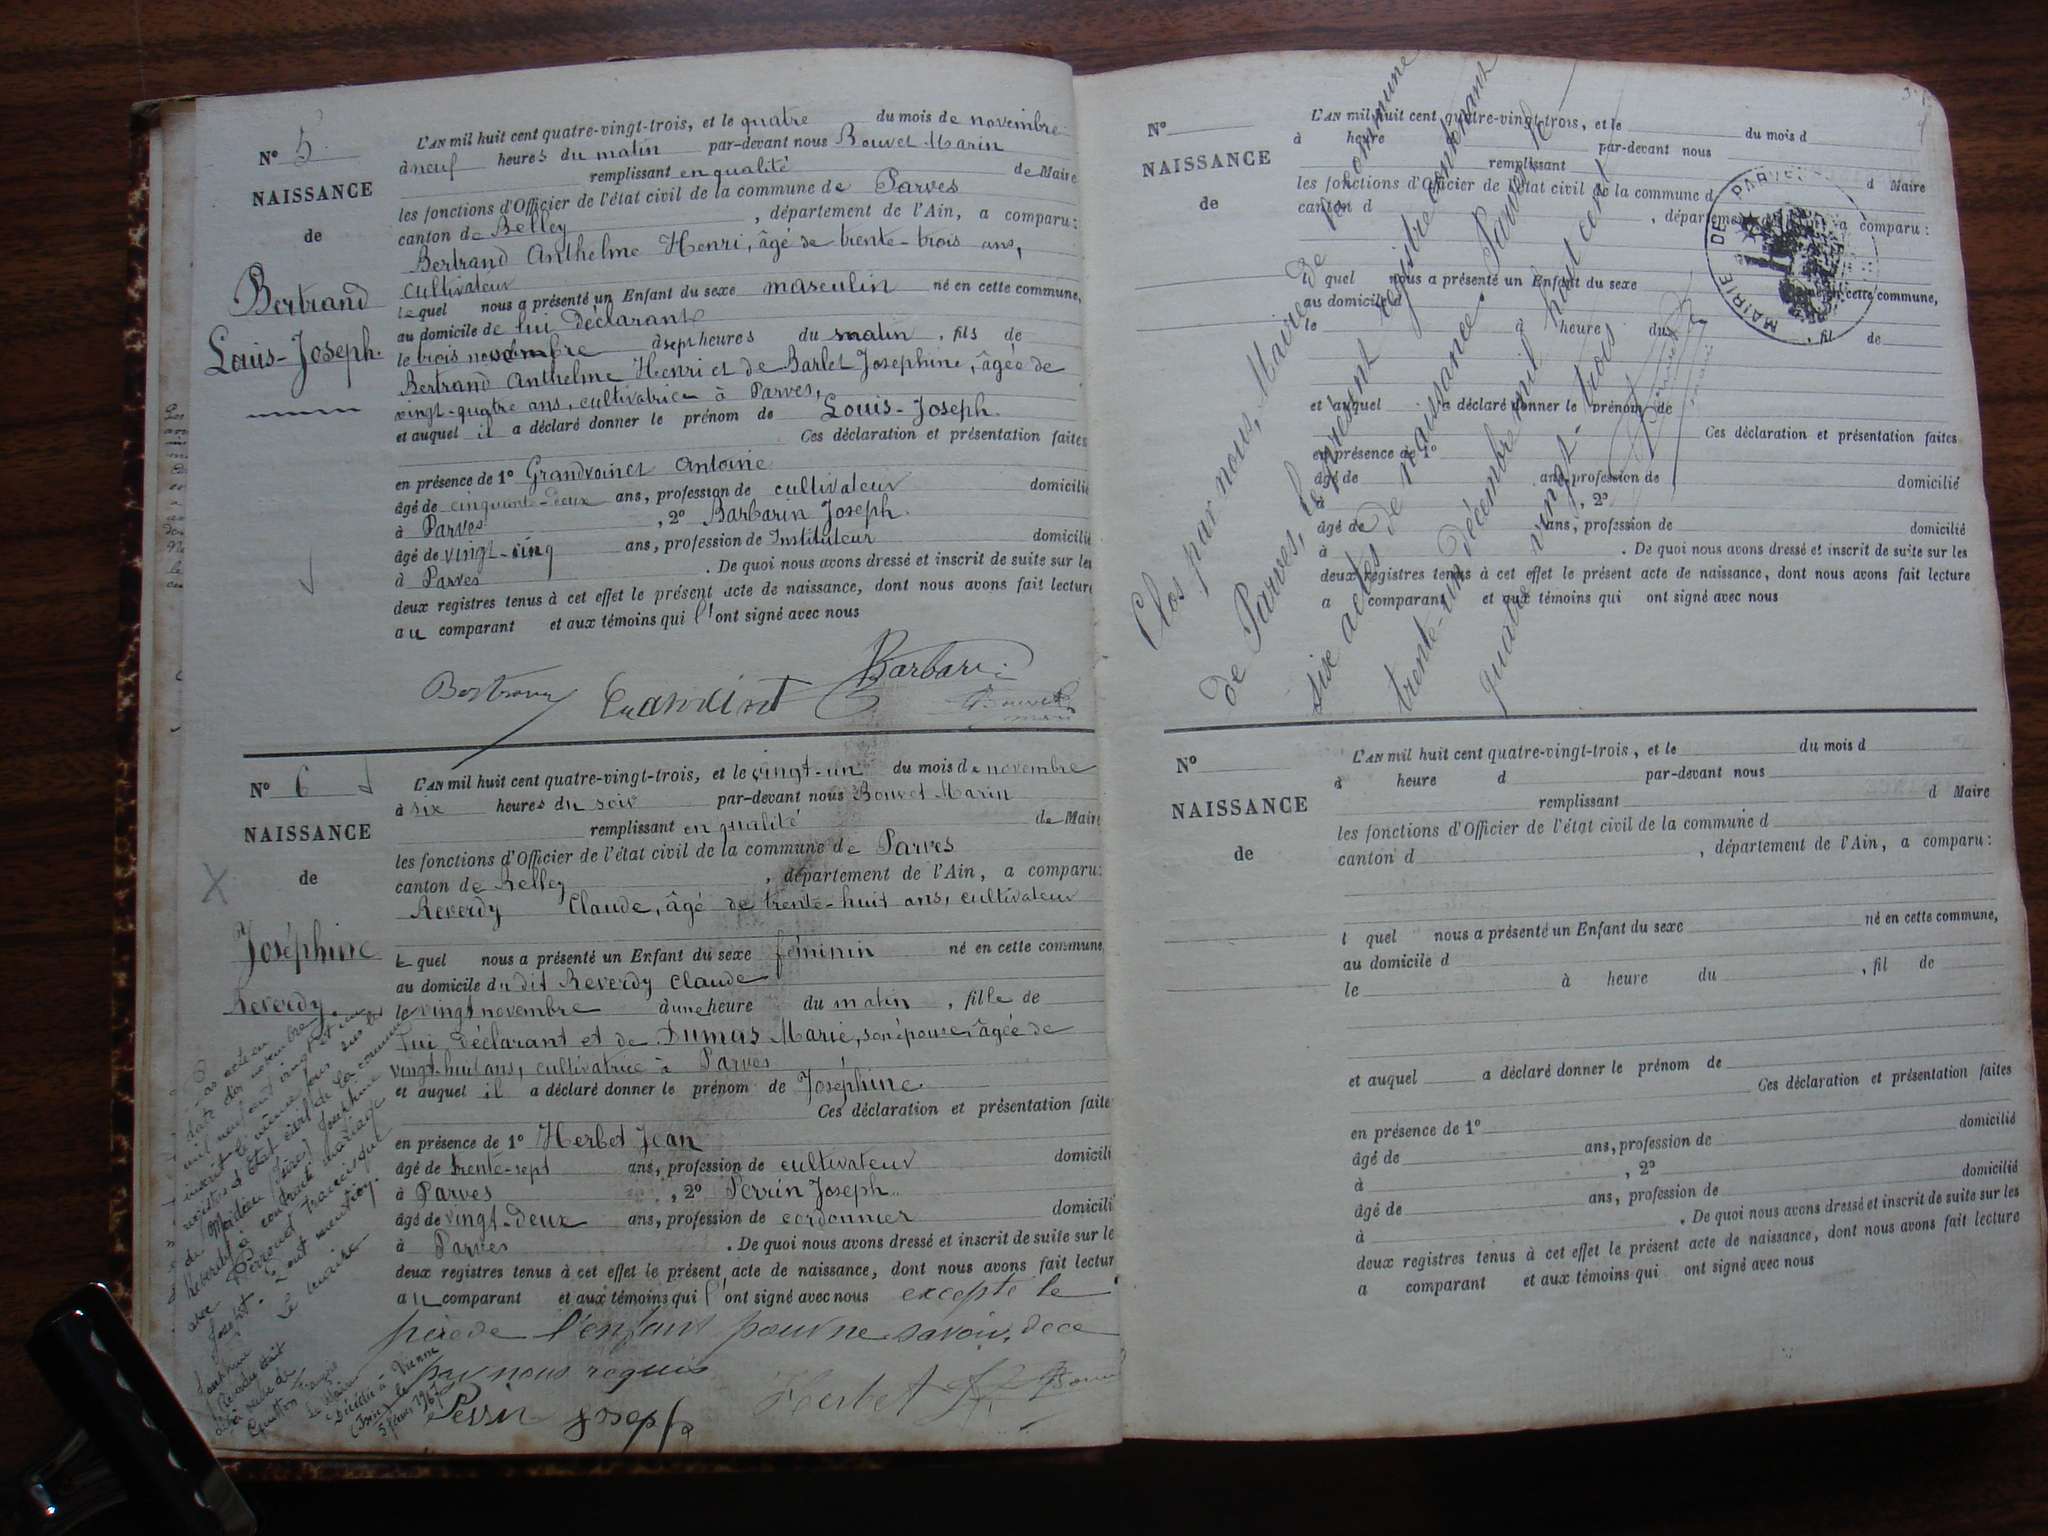 Nº 5
NAISSANCE
de
Bertrand
Louis-Joseph.
L'AN mil huit cent quatre-vingt-trois, et le quatre du mois de novembre
à neuf heures du matin par-devant nous Bouvet Marin
remplissant en qualité de Maire
les fonctions d'Officier de l'état civil de la commune de Parves
canton de Belley, département de l'Ain, a comparu :
Bertrand Anthelme Henri, âgé de trente-trois ans,
cultivateur
lequel nous a présenté un Enfant du sexe masculin né en cette commune,
au domicile de lui Déclarant
le trois novembre à sept heures du matin, fils de
Bertrand Anthelme Henri et de Barlet Josephine, âgée de
vingt-quatre ans, cultivatrice à Parves,
et auquel il a déclaré donner le prénom de Louis-Joseph.
Ces déclaration et présentation faites
en présence de 1º Grandvoinet Antoine
âgé de cinquante-deux ans, profession de cultivateur domicilié
à Parves, 2º Barbarin Joseph.
âgé de vingt-cinq ans, profession de Instituteur domicilié
à Parves. De quoi nous avons dressé et inscrit de suite sur les
deux registres tenus à cet effet le présent acte de naissance, dont nous avons fait lecture
au comparant et aux témoins qui l'ont signé avec nous
Bertrand
Barbarin
Bouvet
Nº 6
NAISSANCE
de
Joséphine
Reverdy.
L'AN mil huit cent quatre-vingt-trois, et le vingt-un du mois de novembre
à six heures du soir par-devant nous Bouvet Marin
remplissant en qualité de Maire
les fonctions d'Officier de l'état civil de la commune de Parves
canton de Belley, département de l'Ain, a comparu :
Reverdy Claude, âgé de trente-huit ans, cultivateur
Lequel nous a présenté un Enfant du sexe féminin né en cette commune
au domicile du dit Reverdy Claude
le vingt novembre à une heure du matin, fille de
lui déclarant et de Dumas Marie, son épouse, âgée de
vingt-huit ans, cultivatrice à Parves
et auquel il a déclaré donner le prénom de Joséphine
Ces déclaration et présentation faite
en présence de 1º Herbet Jean
âgé de trente-sept ans, profession de cultivateur domicili
à Parves, 2º Perrin Joseph.
âgé de vingt-deux ans, profession de cordonnier domicili
à Parves. De quoi nous avons dressé et inscrit de suite sur le
deux registres tenus à cet effet le présent acte de naissance, dont nous avons fait lectur
au comparant et aux témoins qui l'ont signé avec nous excepté le
père de l'enfant pour ne savoir, de ce
par nous requis
Perrin Joseph
Herbet
Par acte en
date du novembre
mil neuf cent vingt et un
inscrit le même jour sur les
registres d'état civil de la commune
de Moidieu (Isère) Joséphine
Reverdy a contracté mariage
avec
Joseph. Dont mention.
Le maire
Décédée à Vienne
(Isère) le
5 février 1967
Nº
NAISSANCE
de
L'AN mil huit cent quatre-vingt-trois, et le du mois d
à heure par-devant nous
remplissant d Maire
les fonctions d'Officier de l'état civil de la commune d
canton d, département de l'Ain, a comparu :
l quel nous a présenté un Enfant du sexe né en cette commune,
au domicile d
le à heure du, fil de
et auquel a déclaré donner le prénom de
Ces déclaration et présentation faites
en présence de 1º
âgé de ans, profession de domicilié
à, 2º
âgé de ans, profession de domicilié
à. De quoi nous avons dressé et inscrit de suite sur les
deux registres tenus à cet effet le présent acte de naissance, dont nous avons fait lecture
a comparant et aux témoins qui ont signé avec nous
Clos par nous, Maire de la commune
de Parves, le présent registre contenant
six actes de naissance. Parves le
trente-un décembre mil huit cent
quatre vingt-trois
MAIRIE DE PARVES
Nº
NAISSANCE
de
L'AN mil huit cent quatre-vingt-trois, et le du mois d
à heure d par-devant nous
remplissant d Maire
les fonctions d'Officier de l'état civil de la commune d
canton d, département de l'Ain, a comparu :
l quel nous a présenté un Enfant du sexe né en cette commune,
au domicile d
le à heure du, fil de
et auquel a déclaré donner le prénom de
Ces déclaration et présentation faites
en présence de 1º
âgé de ans, profession de domicilié
à, 2º
âgé de ans, profession de domicilié
à. De quoi nous avons dressé et inscrit de suite sur les
deux registres tenus à cet effet le présent acte de naissance, dont nous avons fait lecture
a comparant et aux témoins qui ont signé avec nous